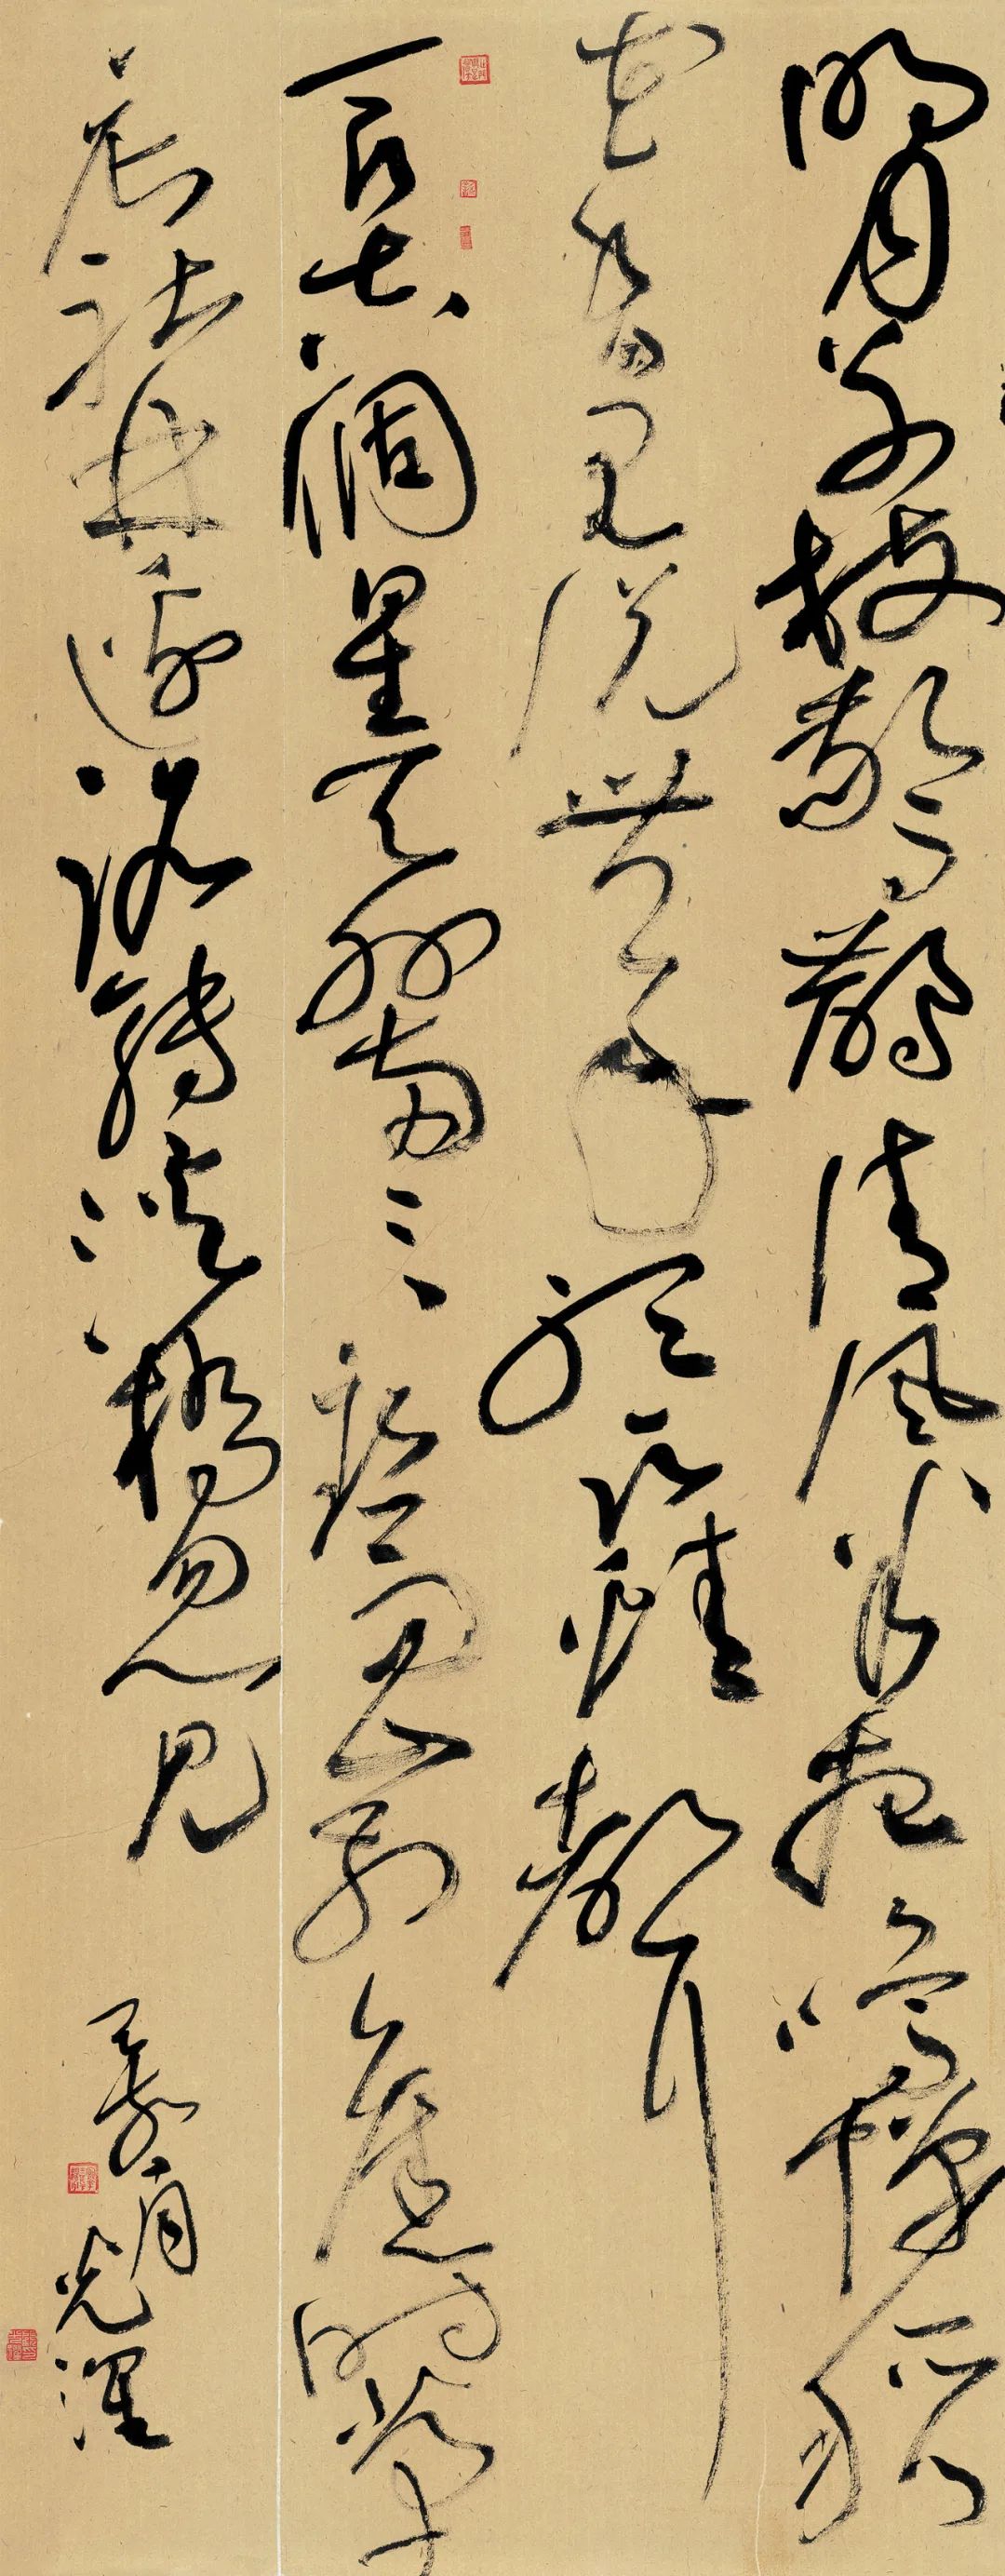 明月別枝驚鵲清風半夜鳴蟬稻
花香里說豐年聽取蛙聲
一片七八個星天外兩三點雨山前舊時茅
店社林邊路轉溪橋忽見